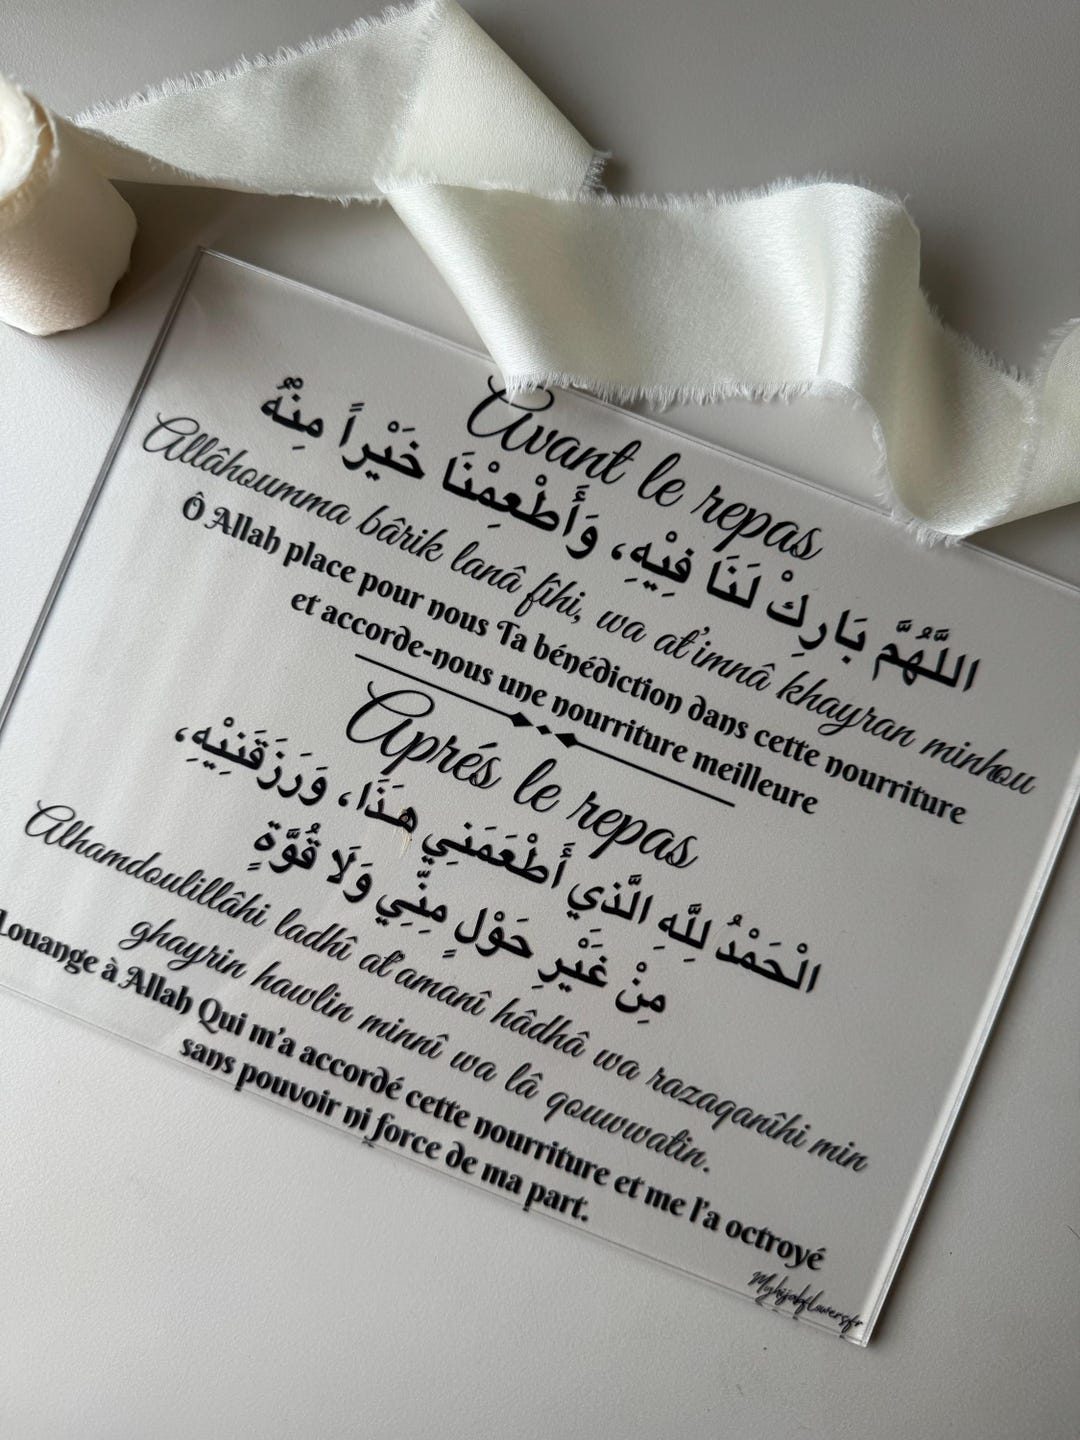 Avant le repas
اللَّهُمَّ بَارِكْ لَنَا فِيْهِ، وَأَطْعِمْنَا خَيْراً مِنْهُ
Allâhoumma bârik lanâ fîhi, wa at'imnâ khayran minhou
Ô Allah place pour nous Ta bénédiction dans cette nourriture
et accorde-nous une nourriture meilleure
Aprés le repas
الْحَمْدُ لِلَّهِ الَّذي أَطْعَمَنِي هـَذَا، وَرَزَقَنِيْهِ،
مِنْ غَيْرِ حَوْلٍ مِنِّي وَلَا قُوَّةٍ
Alhamdoulillâhi ladhî at'amanî hâdhâ wa razaqanîhi min
ghayrin hawlin minnî wa lâ qouwwatin.
Louange à Allah Qui m'a accordé cette nourriture et me l'a octroyé
sans pouvoir ni force de ma part.
Myhijabflowersfr